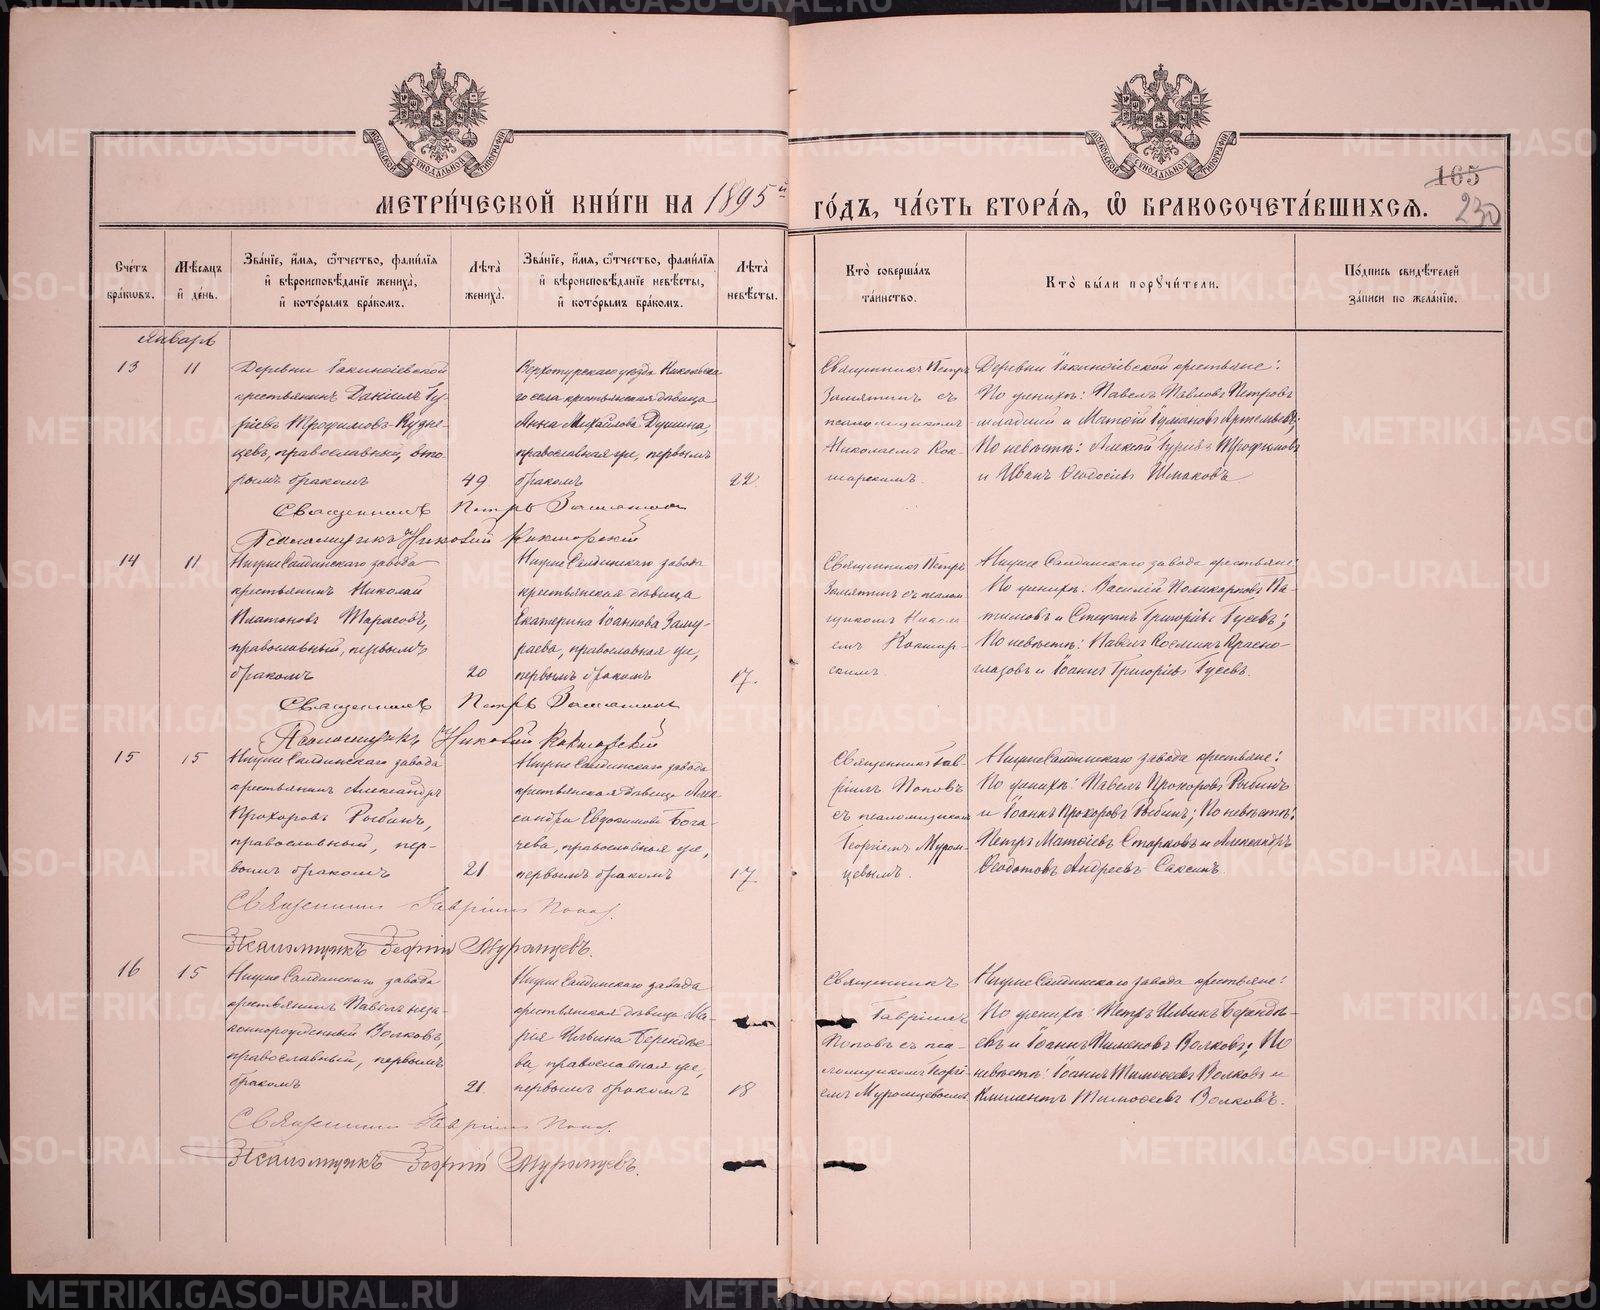 МЕТРИ́ЧЕСКОЙ КНИ́ГИ НА 1895й ГО́ДЪ, ЧА́СТЬ ВТОРА́Я, Ѡ БРАКОСОЧЕТА́ВШИХСЯ.
165
230
Сче́тъ бра́кωвъ.
Мѣ́сяцъ и҆ де́нь.
Зва́нїе, и҆́мя, ѻ҆́тчество, фами́лїя и҆ вѣроисповѣ́данїе жениха̀, и҆ кото́рымъ бра́комъ.
Лѣ́та жениха̀.
Зва́нїе, и҆́мя, ѻ҆́тчество, фами́лїя и҆ вѣроисповѣ́данїе невѣ́сты, и҆ кото́рымъ бра́комъ.
Лѣ́та невѣ́сты.
Кто̀ соверша́лъ та́инство.
Кто̀ бы́ли порꙋчи́тели.
По́дпись свидѣ́телей за́писи по жела́нїю.
Январь
13
11
Деревни Іакинѳіевской
крестьянинъ Даніилъ Гу-
ріевъ Трофимовъ-Кузне-
цевъ, православный, вто-
рымъ бракомъ
49
Верхотурскаго уѣзда Никольска-
го села крестьянская дѣвица
Анна Михайлова Душина,
православная же, первымъ
бракомъ
22.
Священникъ Петръ
Замятинъ съ
псаломщикомъ
Николаемъ Кок-
шарскимъ.
Деревни Іакинѳіевской крестьяне:
По женихѣ: Павелъ Павловъ Петровъ
младшій и Матѳій
По невѣстѣ: Алексій Гуріевъ Трофимовъ
и Иванъ Ѳеодосіевъ Шмаковъ
Священникъ Петръ Замятинъ
Псаломщикъ Николай Кокшарскій
14
11
Нижнесалдинскаго завода
крестьянинъ Николай
Платоновъ Тарасовъ,
православный, первымъ
бракомъ
20
Нижнесалдинскаго завода
крестьянская дѣвица
Екатерина Іоаннова Заму-
раева, православная же,
первымъ бракомъ
17.
Священникъ Петръ
Замятинъ съ псалом-
щикомъ Никола-
емъ Кокшар-
скимъ.
Нижнесалдинскаго завода крестьяне:
По женихѣ: Василій Поликарповъ Па-
тимовъ и Стефанъ Григоріевъ Гусевъ;
По невѣстѣ: Павелъ Космикъ Красно-
глазовъ и Іоаннъ Григоріевъ Гусевъ.
Священникъ Петръ Замятинъ
Псаломщикъ Николай Кокшарскій
15
15
Нижнесалдинскаго завода
крестьянинъ Александръ
Прохоровъ Рыбинъ,
православный, пер-
вымъ бракомъ
21
Нижнесалдинскаго завода
крестьянская дѣвица Алек-
сандра Евдокимова Бога-
чева, православная же,
первымъ бракомъ
17.
Священникъ Гав-
ріилъ Поповъ
съ псаломщикомъ
Георгіемъ Муром-
цевымъ.
Нижнесалдинскаго завода крестьяне:
По женихѣ: Павелъ Прохоровъ Рыбинъ
и Іоаннъ Прохоровъ Рыбинъ; По невѣстѣ:
Петръ Матѳіевъ Старковъ и Александръ
Ѳеодотовъ Андреевъ-Саксинъ.
Священникъ Гавріилъ Поповъ.
Псаломщикъ Георгій Муромцевъ.
16
15
Нижнесалдинскаго завода
крестьянинъ Павелъ неза-
коннорожденный Волковъ,
православный, первымъ
бракомъ
21.
Нижнесалдинскаго завода
крестьянская дѣвица Ма-
рія Ильина Берендѣе-
ва, православная же,
первымъ бракомъ
18
Священникъ
Гавріилъ
Поповъ съ пса-
ломщикомъ Георгі-
емъ Муромцевымъ
Нижнесалдинскаго завода крестьяне:
По женихѣ: Петръ Ивинъ Берендѣ-
евъ и Іоаннъ Пименовъ Волковъ; По
невѣстѣ: Іоаннъ Тимоѳеевъ Волковъ и
Климентъ Тимоѳеевъ Волковъ.
Священникъ Гавріилъ Поповъ.
Псаломщикъ Георгій Муромцевъ.
METRIKI.GASO-URAL.RU